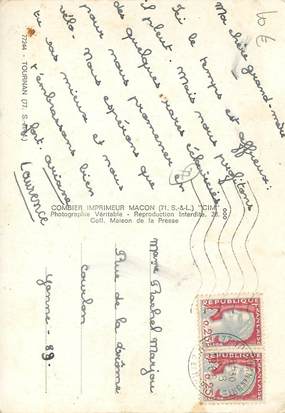 10 F
Ma chère grand-mère
Ici le temps et affreux:
il pleut. Mais nous profitons
des quelques éclaircies
pour nous promener à
vélo. Nous espérons que
tu vas mieux et nous
t'embrassons bien
fort. Oriane
Laurence
77244 - TOURNAN (77. S.-&-M.)
COMBIER IMPRIMEUR MACON (71. S.-&-L.) "CIM"
Photographie Véritable - Reproduction Interdite,
Coll. Maison de la Presse
Mme Rachel Marjou
Rue de la
Courlon
Yonne - 89.
REPUBLIQUE
FRANÇAISE
0,25
REPUBLIQUE
FRANÇAISE
0,25